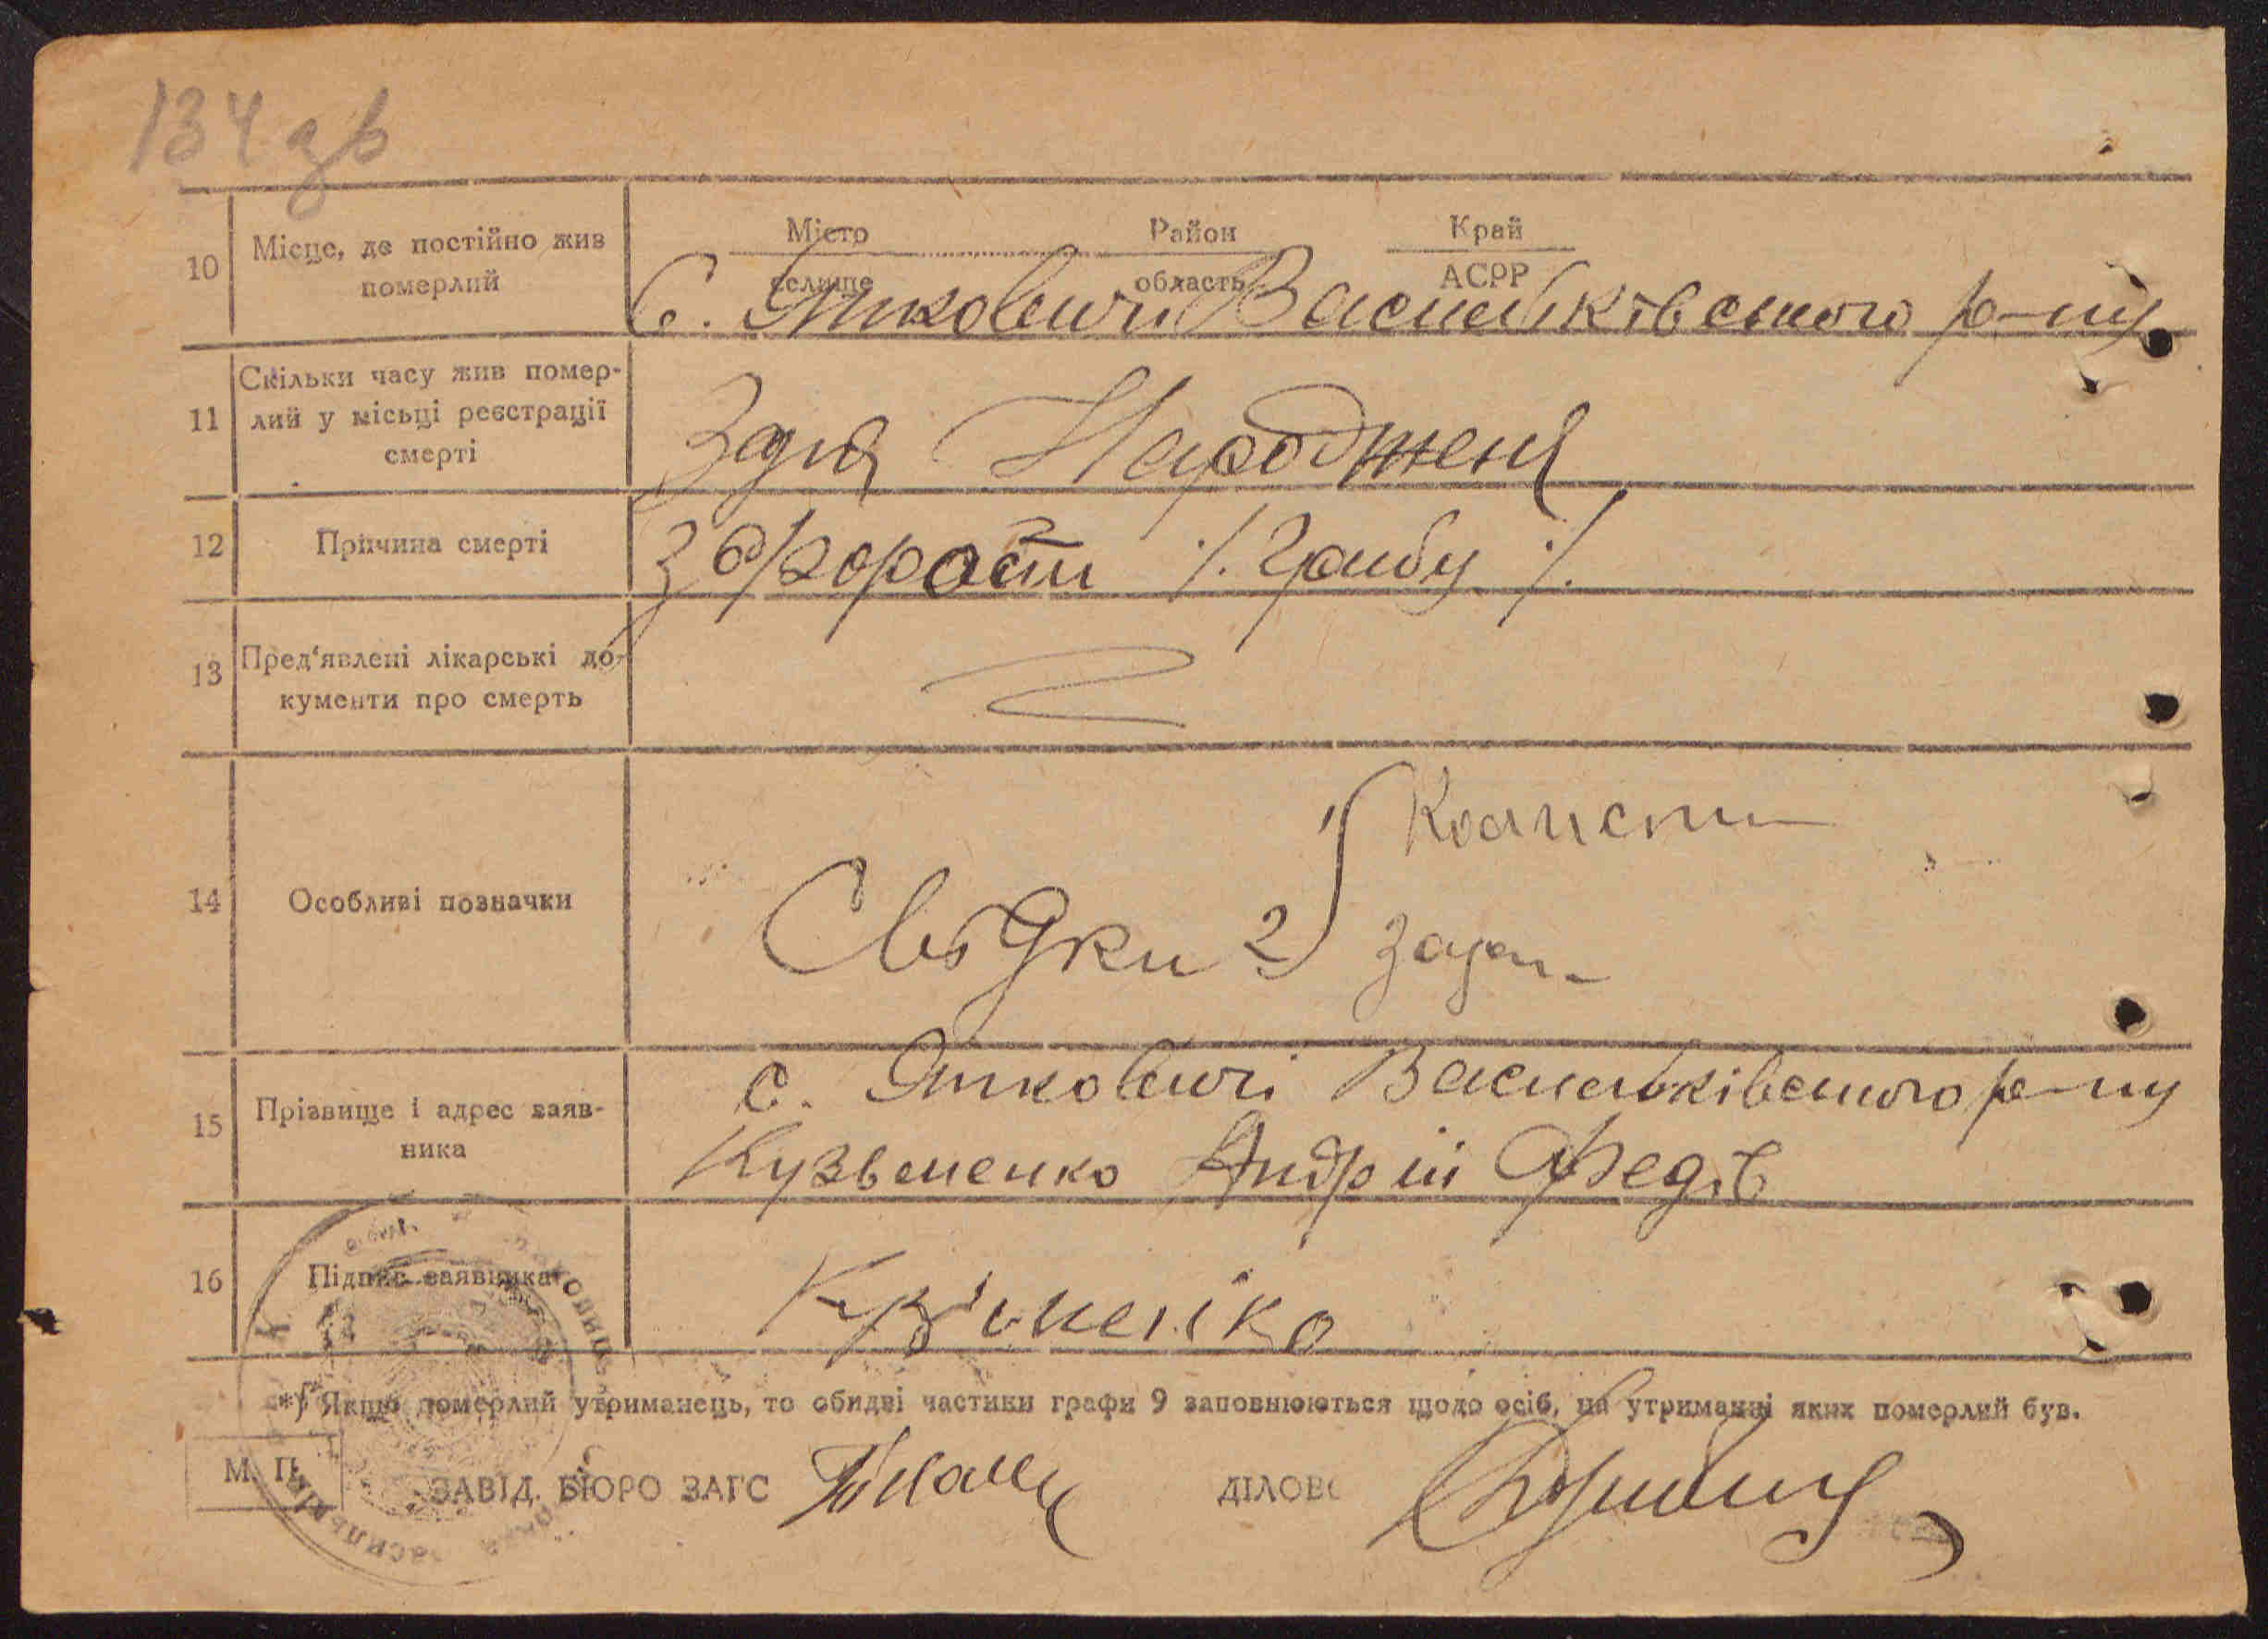 134 зв
10 Місце, де постійно жив померлий
Місто Район Край
селище область АСРР
С. Яцковичи Васильківського р-ну
11 Скільки часу жив помер-
лий у місьці реєстрації
смерті
Здня Народженя
12 Причина смерті
З хорости /. Грибу ./.
13 Пред'явлені лікарські до-
кументи про смерть
14 Особливі позначки
Свідки 2
15 Прізвище і адрес заяв-
ника
с. Яцковичі Васильківського р-ну
Кузьменко Андрій Федів
16 Підпис заявника
Кузьменко
*) Якщо померлий утриманець, то обидві частини графи 9 заповнюються щодо осіб, на утриманні яких померлий був.
М. П.
ЗАВІД. БЮРО ЗАГС
ДІЛОВ